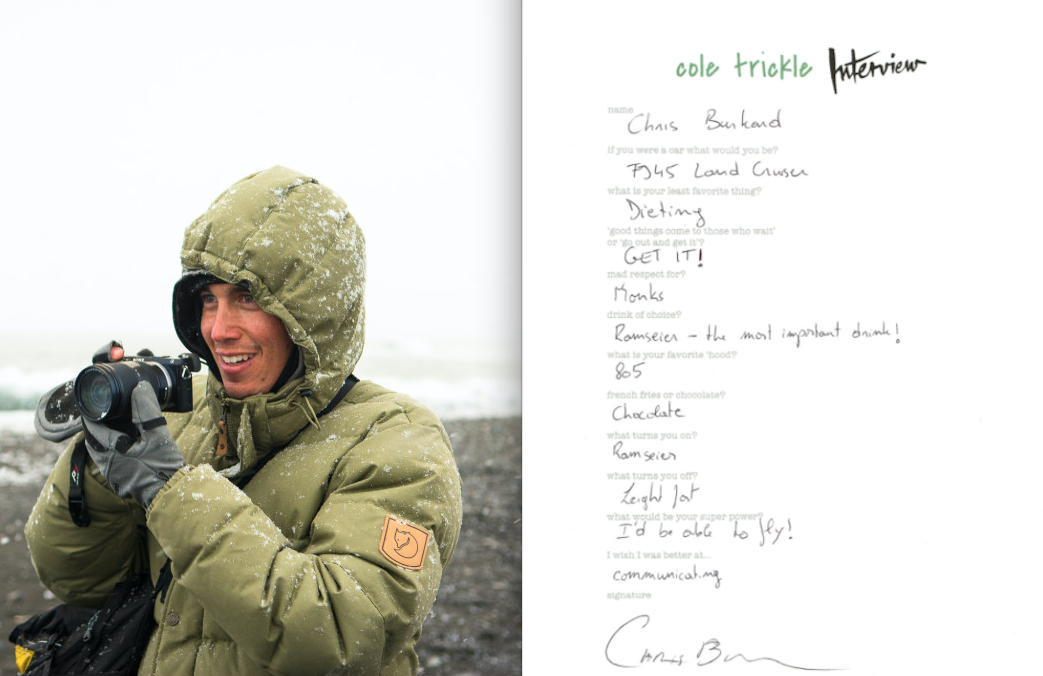 cole trickle Interview
name
Chris Burkard
if you were a car what would you be?
FJ45 Land Cruiser
what is your least favorite thing?
Dieting
'good things come to those who wait'
or 'go out and get it'?
GET IT!
mad respect for?
Monks
drink of choice?
Ramseier - the most important drink!
what is your favorite 'hood?
805
french fries or chocolate?
Chocolate
what turns you on?
Ramseier
what turns you off?
what would be your super power?
I'd be able to fly!
I wish I was better at...
communicating
signature
Chris
SONY